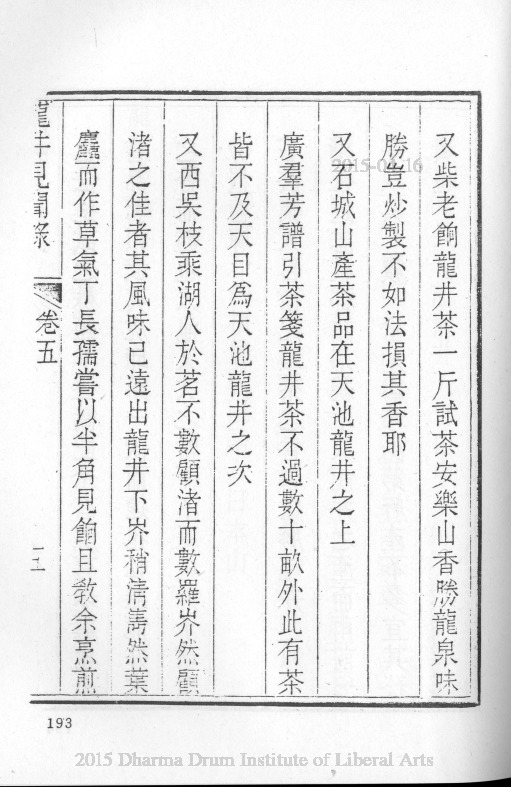 又柴老餉龍井茶一斤試茶安樂山香勝龍泉味
勝豈炒製不如法損其香耶
又石城山產茶品在天池龍井之上
廣羣芳譜引茶箋龍井茶不過數十畝外此有茶
皆不及天目爲天池龍井之次
又西吳枝乘湖人於茗不數顧渚而數羅岕然顧
渚之佳者其風味已遠出龍井下岕稍清雋然葉
麤而作草氣丁長孺嘗以半角見餉且敎余烹煎
龍井見聞錄
卷五
2015-04-16
193
2015 Dharma Drum Institute of Liberal Arts